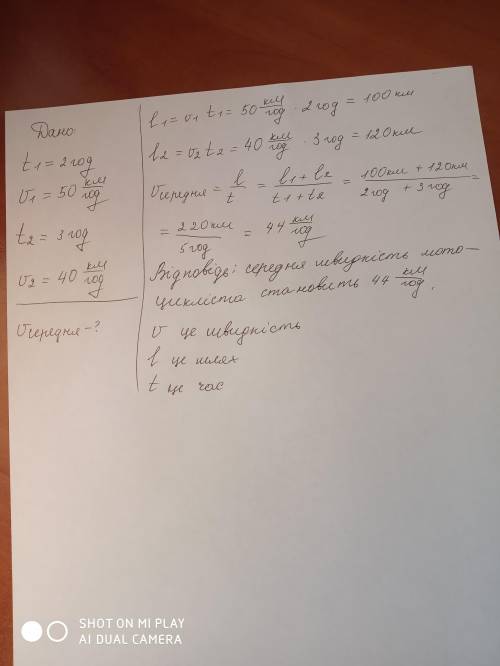 Дано
t₁ = 2 год
v₁ = 50 км/год
t₂ = 3 год
v₂ = 40 км/год
vсередня - ?
l₁ = v₁ t₁ = 50 км/год · 2 год = 100 км
l₂ = v₂ t₂ = 40 км/год · 3 год = 120 км
vсередня = l/t = (l₁ + l₂)/(t₁ + t₂) = (100 км + 120 км)/(2 год + 3 год) =
= 220 км/5 год = 44 км/год
Відповідь: середня швидкість мото-
цикліста становить 44 км/год.
v це швидкість
l це шлях
t це час
SHOT ON MI PLAY
AI DUAL CAMERA